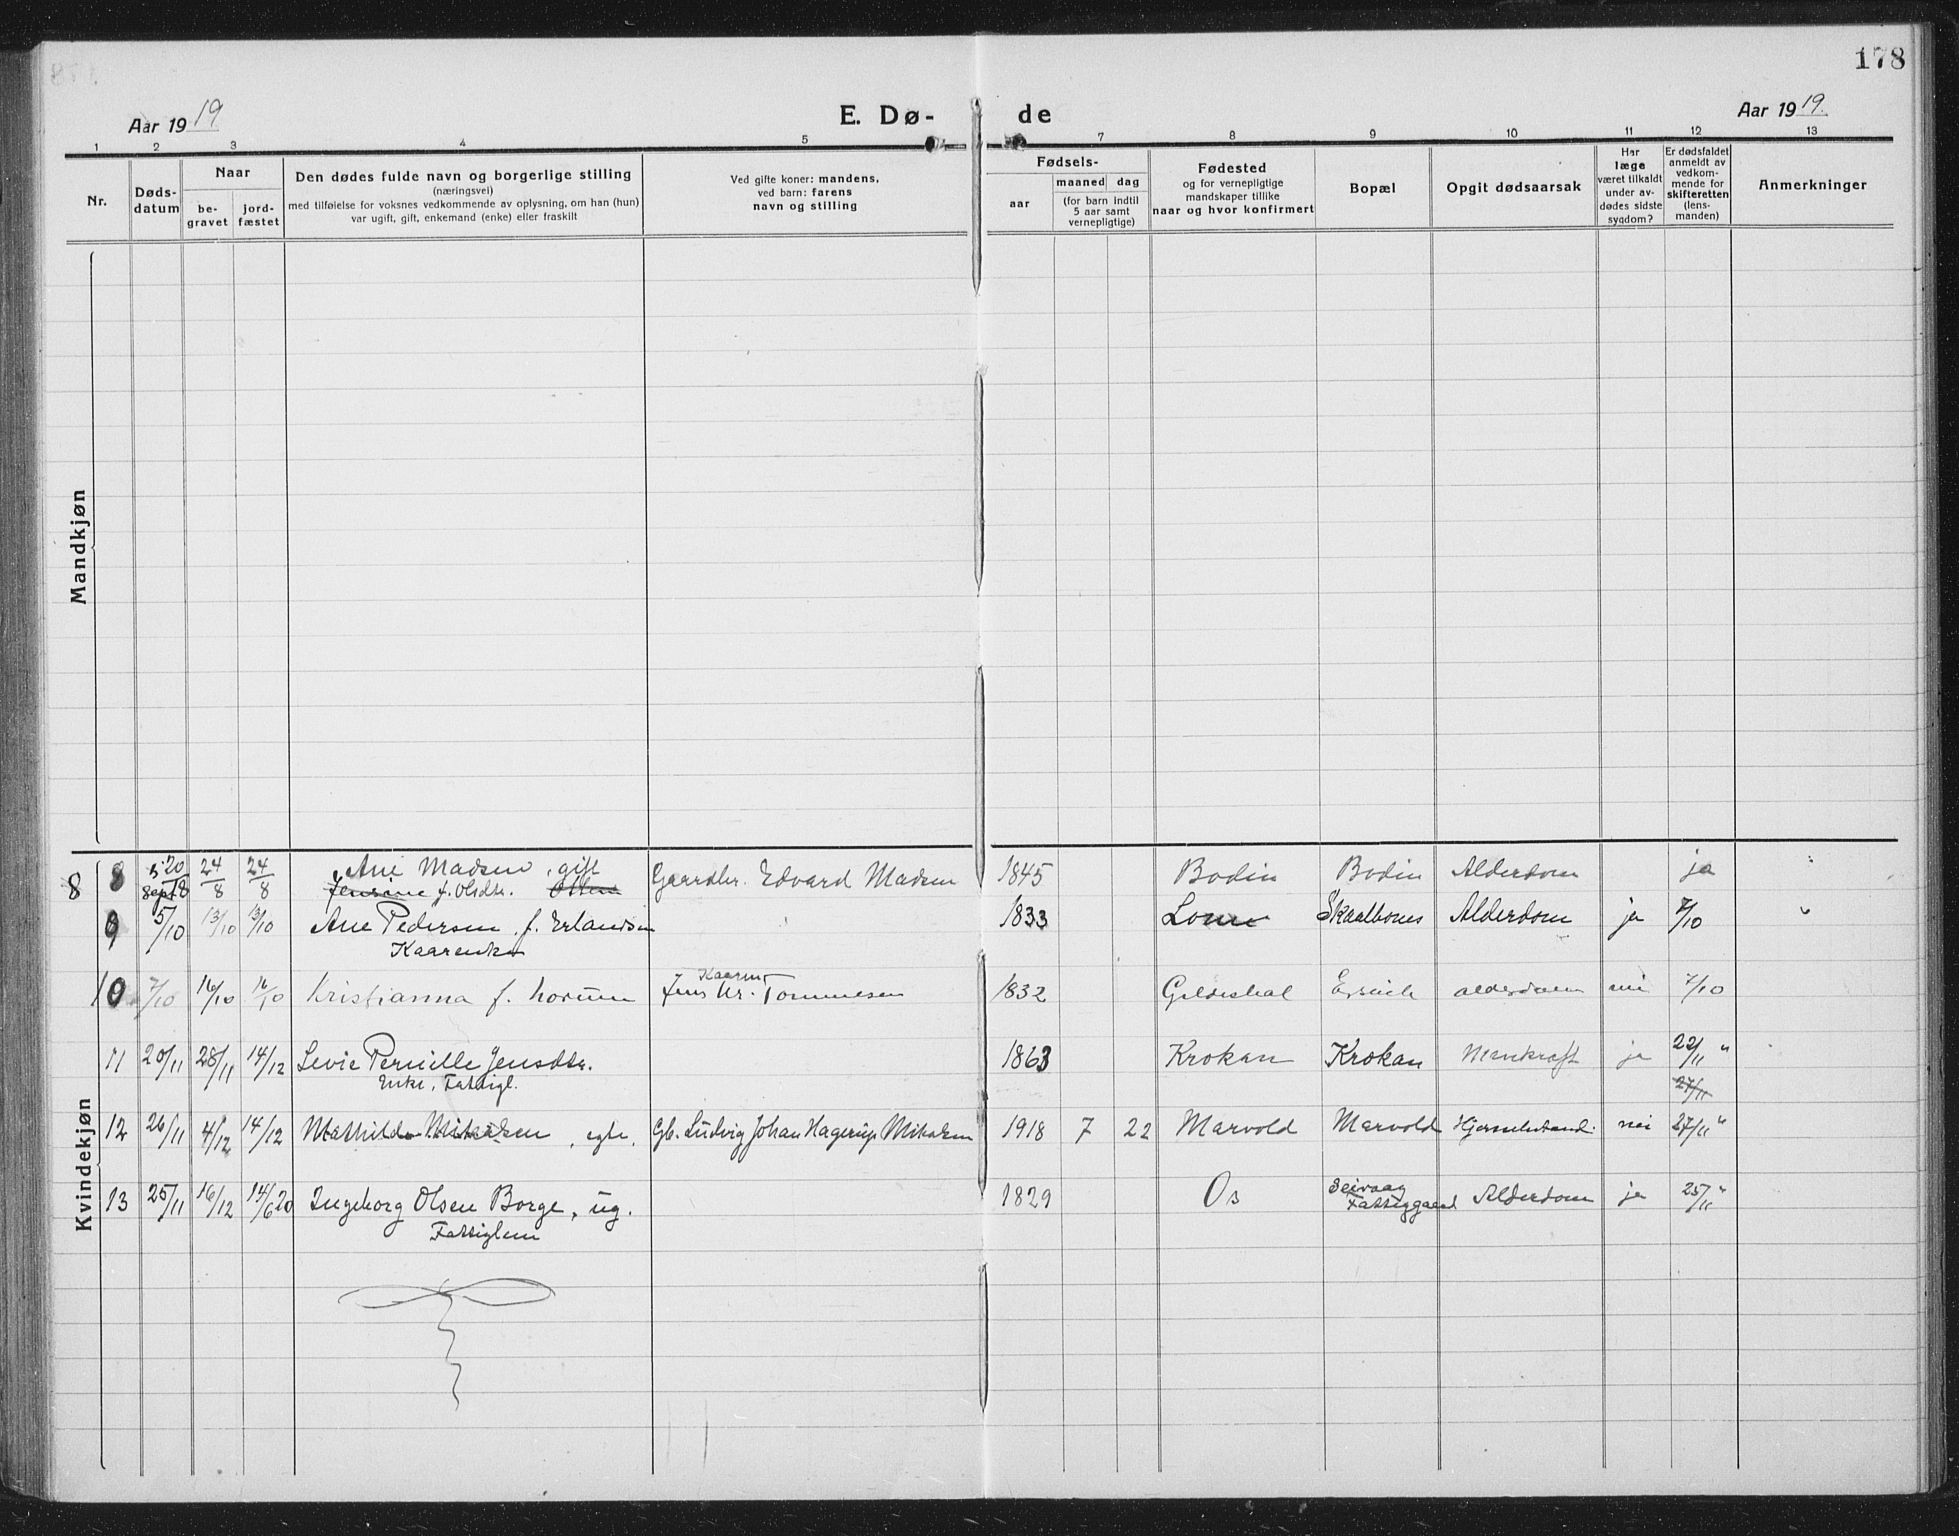 178
Aar 1919
E. Dø-
de
Aar 1919.
1 2 3 4 5 7 8 9 10 11 12 13
Nr.
Døds-
datum
Naar
be-
gravet
jord-
fæstet
Den dødes fulde navn og borgerlige stilling
(næringsvei)
med tilføielse for voksnes vedkommende av oplysning, om han (hun)
var ugift, gift, enkemand (enke) eller fraskilt
Ved gifte koner: mandens,
ved barn: farens
navn og stilling
Fødsels-
aar
maaned dag
(for barn indtil
5 aar samt
vernepligtige)
Fødested
og for vernepligtige
mandskaper tillike
naar og hvor konfirmert
Bopæl
Opgit dødsaarsak
Har
læge
været tilkaldt
under av-
dødes sidste
sygdom?
Er dødsfaldet
anmeldt av
vedkom-
mende for
skifteretten
(lens-
manden)
Anmerkninger
Mandkjøn
Kvindekjøn
8 8 20/8 24/8 24/8 Ane Madsen, gift Gaardbr. Edvard Madsen 1845 Bodin Bodin Alderdom ja
Sept Jensine f. Olsdtr. Olsen
9 5/10 13/10 13/10 Ane Pedersen f. Erlandsen 1833 Skaalbones Alderdom ja 7/10
Kaarenke
10 7/10 16/10 16/10 Kristianna f. Jens Kr. Tommesen 1832 Gildeskal alderdom nei 7/10
Kaarm
11 20/11 28/11 14/12 Levie Pernille Jensdtr. 1863 Krokan Krokan ja 22/11 "
Enke, Fattigl. 27/11
12 26/11 4/12 14/12 Mathilde Mikalsen, egte. Gb. Ludvig Johan Hagerup Mikalsen 1918 7 22 Marvold Marvold nei 27/11 "
13 25/11 16/12 14/6 20 Ingeborg Olsen Borge, ug. 1829 Os Seivaag Alderdom ja 25/11 "
Fattiglem Fattiggaard